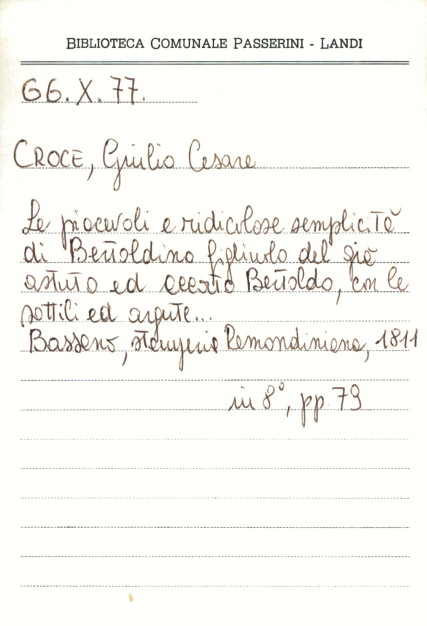 BIBLIOTECA COMUNALE PASSERINI - LANDI
G6.X.77.
CROCE, Giulio Cesare
Le piacevoli e ridicolose semplicità
di Bertoldino figliuolo del già
astuto ed accorto Bertoldo, con le
sottili ed argute...
Bassano, stamperia Remondiniana, 1811
in 8°, pp 79